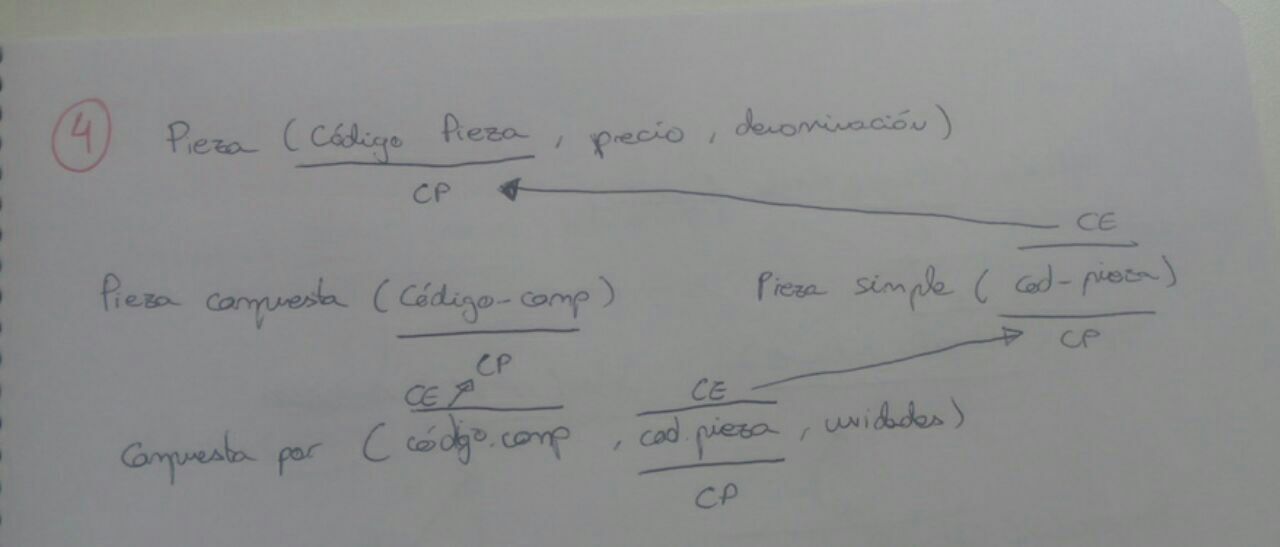 4 Pieza (Código Pieza, precio, denominación)
CP
CE
Pieza compuesta (Código-comp) Pieza simple (cod-pieza)
CP CP
CE CE
Compuesta por (código.comp, cod.pieza, unidades)
CP